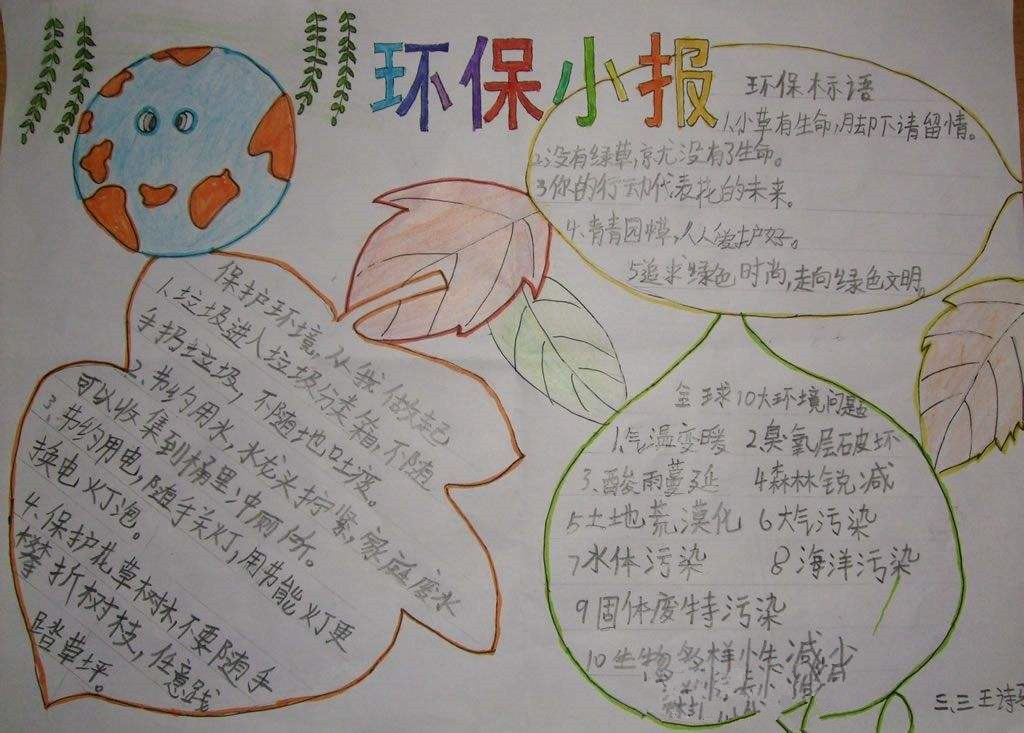 环保小报
环保标语
1.小草有生命,脚下请留情。
2.没有绿草,就没有了生命。
3你的行动代表花的未来。
4、青青园草,人人爱护好。
5追求绿色时尚,走向绿色文明。
保护环境,从我做起
1.垃圾进入垃圾分类箱,不随
手扔垃圾,不随地吐痰。
2.节约用水,水龙头拧紧,家庭废水
可以收集到桶里,冲厕所。
3.节约用电,随手关灯,用节能灯更
换电灯泡。
4.保护花草树林,不要随手
攀折树枝,任意踐
踏草坪。
全球10大环境问题
1.气温变暖 2.臭氧层破坏
3、酸雨蔓延 4森林锐减
5土地荒漠化 6大气污染
7水体污染 8海洋污染
9固体废特污染
10生物多样性减少
三、三王诗